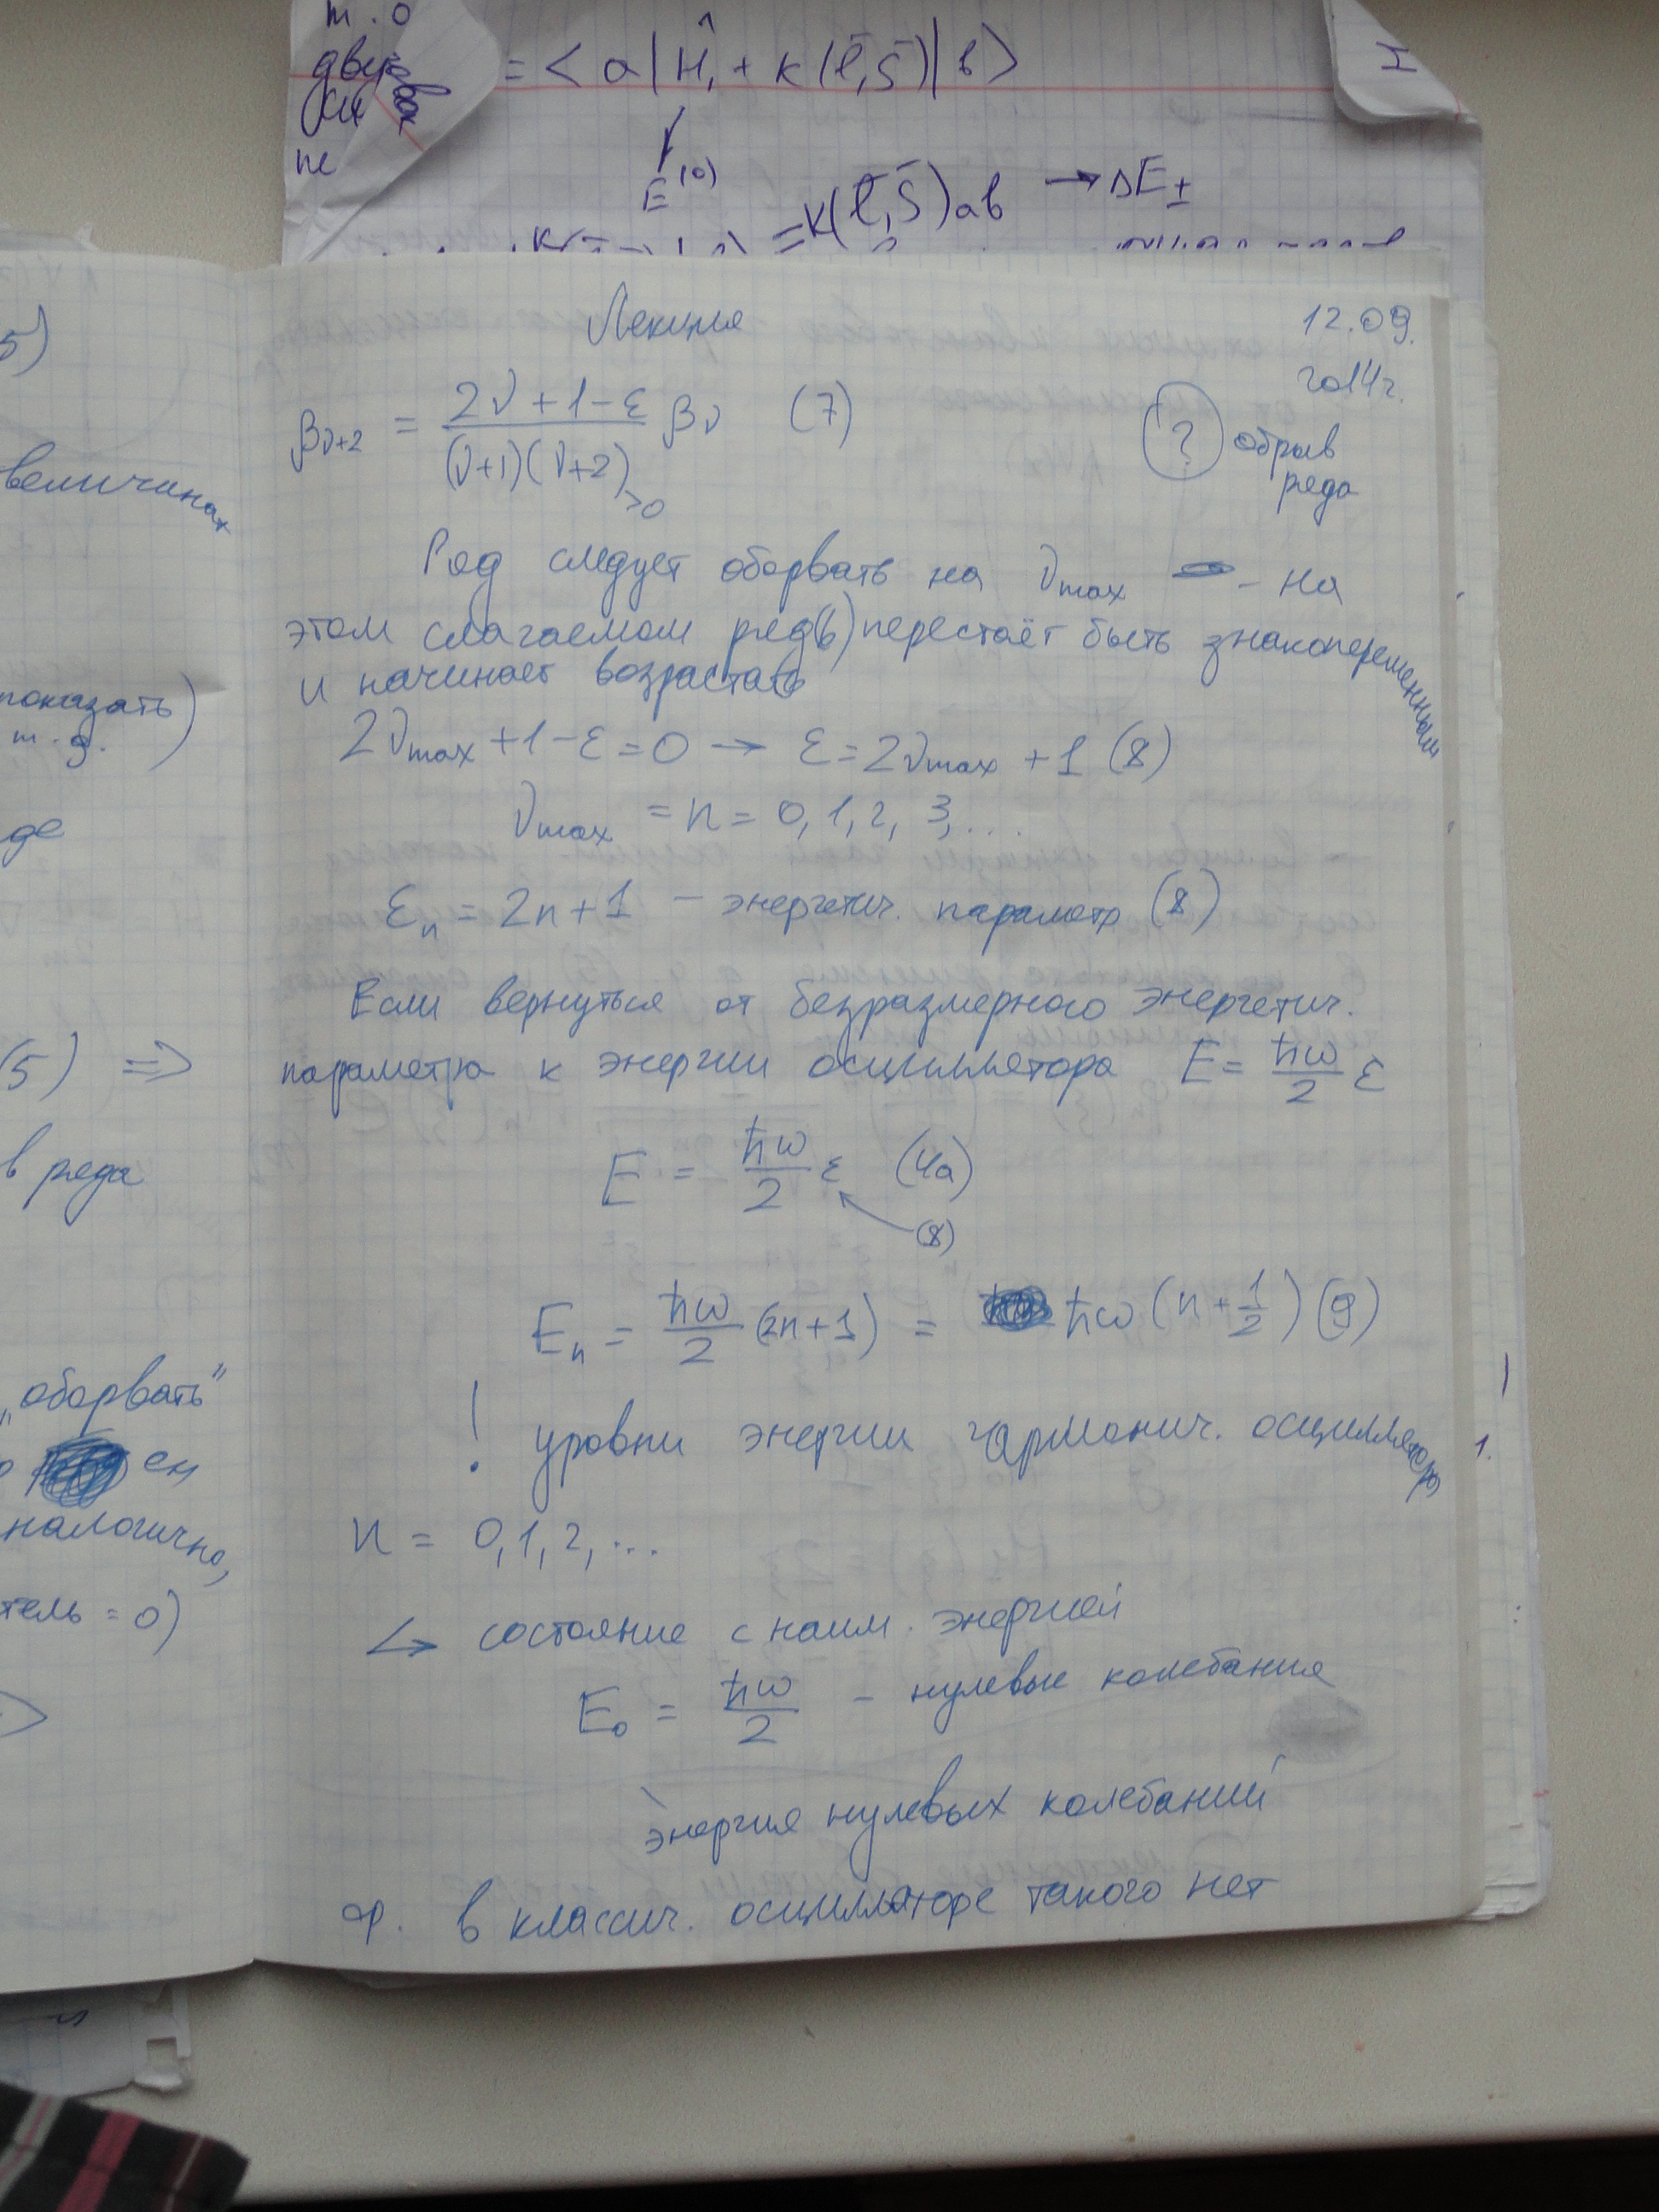 т.о
= <a|Ĥ₁ + K(l̄,S̄)|b>
не
E⁽⁰⁾
= K(l̄,S̄)ab → ΔE±
5)
величинах
показать)
т.д.
де
(5) ⇒
в ряда
„оборвать"
ен
налогично,
тель = 0)
Лекция
12.09.
2014г.
βν+2 = (2ν + 1 - ε)/((ν+1)(ν+2)) βν (7)
>0
? обрыв
ряда
Ряд следует оборвать на νmax - на
этом слагаемом ряд(6) перестаёт быть знакопеременным
и начинает возрастать
2νmax + 1 - ε = 0 → ε = 2νmax + 1 (8)
νmax = n = 0, 1, 2, 3, ...
εn = 2n + 1 - энергетич. параметр (8)
Если вернуться от безразмерного энергетич.
параметра к энергии осциллятора E = ħω/2 ε
E = ħω/2 ε (4а)
(8)
En = ħω/2 (2n+1) = ħω (n + 1/2) (9)
! уровни энергии гармонич. осциллятора
n = 0, 1, 2, ...
↳ состояние с наим. энергией
E₀ = ħω/2 - нулевые колебания
энергия нулевых колебаний
ср. в классич. осцилляторе такого нет